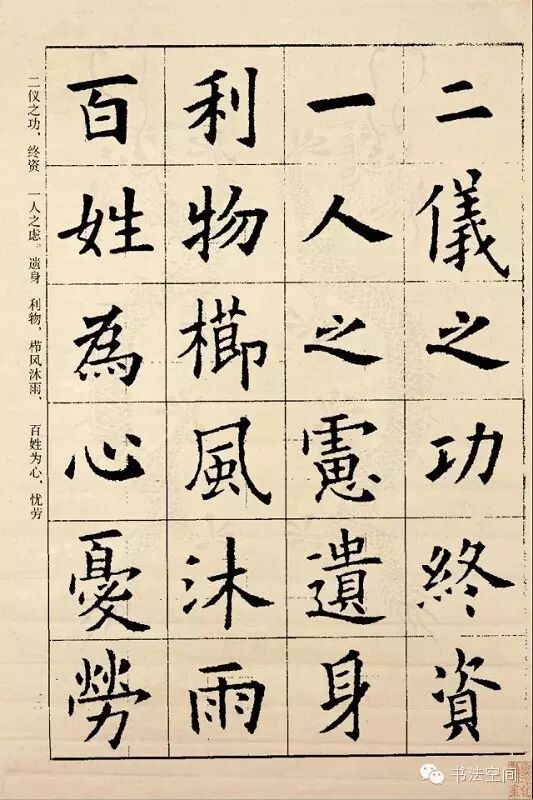 二儀之功終資
一人之慮遺身
利物櫛風沐雨
百姓為心憂勞
二仪之功,终资 一人之虑。遗身 利物,栉风沐雨, 百姓为心,忧劳
书法空间